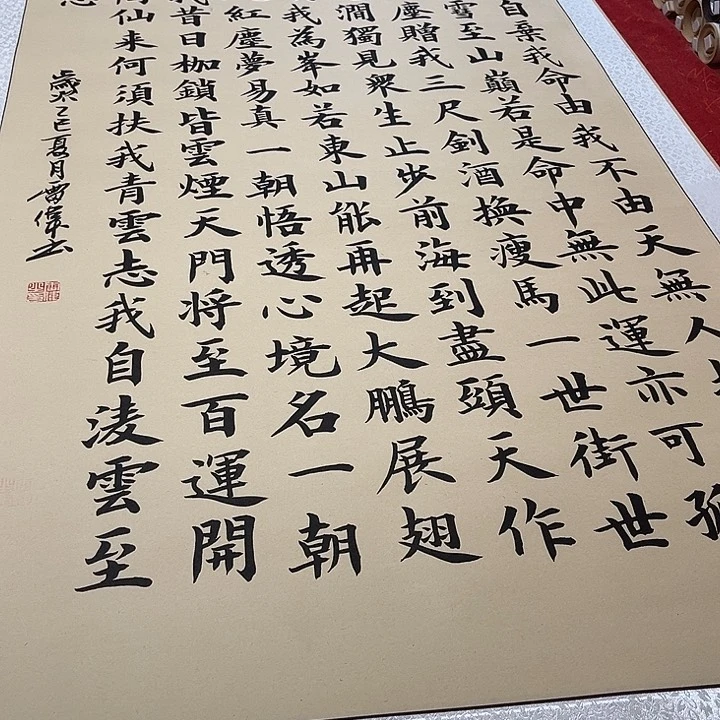 自棄我命由我不由天無人
雪至山巔若是命中無此運亦可孤
塵贈我三尺釗酒撫瘦馬一世街世
澗獨見眾生止步前海到盡頭天作
我為峯如若東山能再起大鵬展翅
紅塵夢易真一朝悟透心境名一朝
我昔日枷鎖皆雲煙天門将至百運開
仙来何須扶我青雲志我自凌雲至
歲次乙巳夏月雷偉书